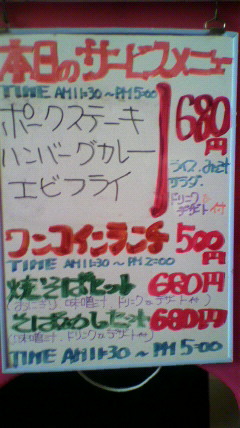 本日のサービスメニュー
TIME AM11:30 ~ PM5:00
ポークステーキ
ハンバーグカレー
エビフライ
680円
ライス.みそ汁
サラダ.
ドリンク
デザート付
ワンコインランチ 500円
TIME AM11:30 ~ PM2:00
焼そばセット 680円
(おにぎり 味噌汁.ドリンク&デザート付)
そばめしセット 680円
(味噌汁.ドリンク&デザート付)
TIME AM11:30 ~ PM5:00